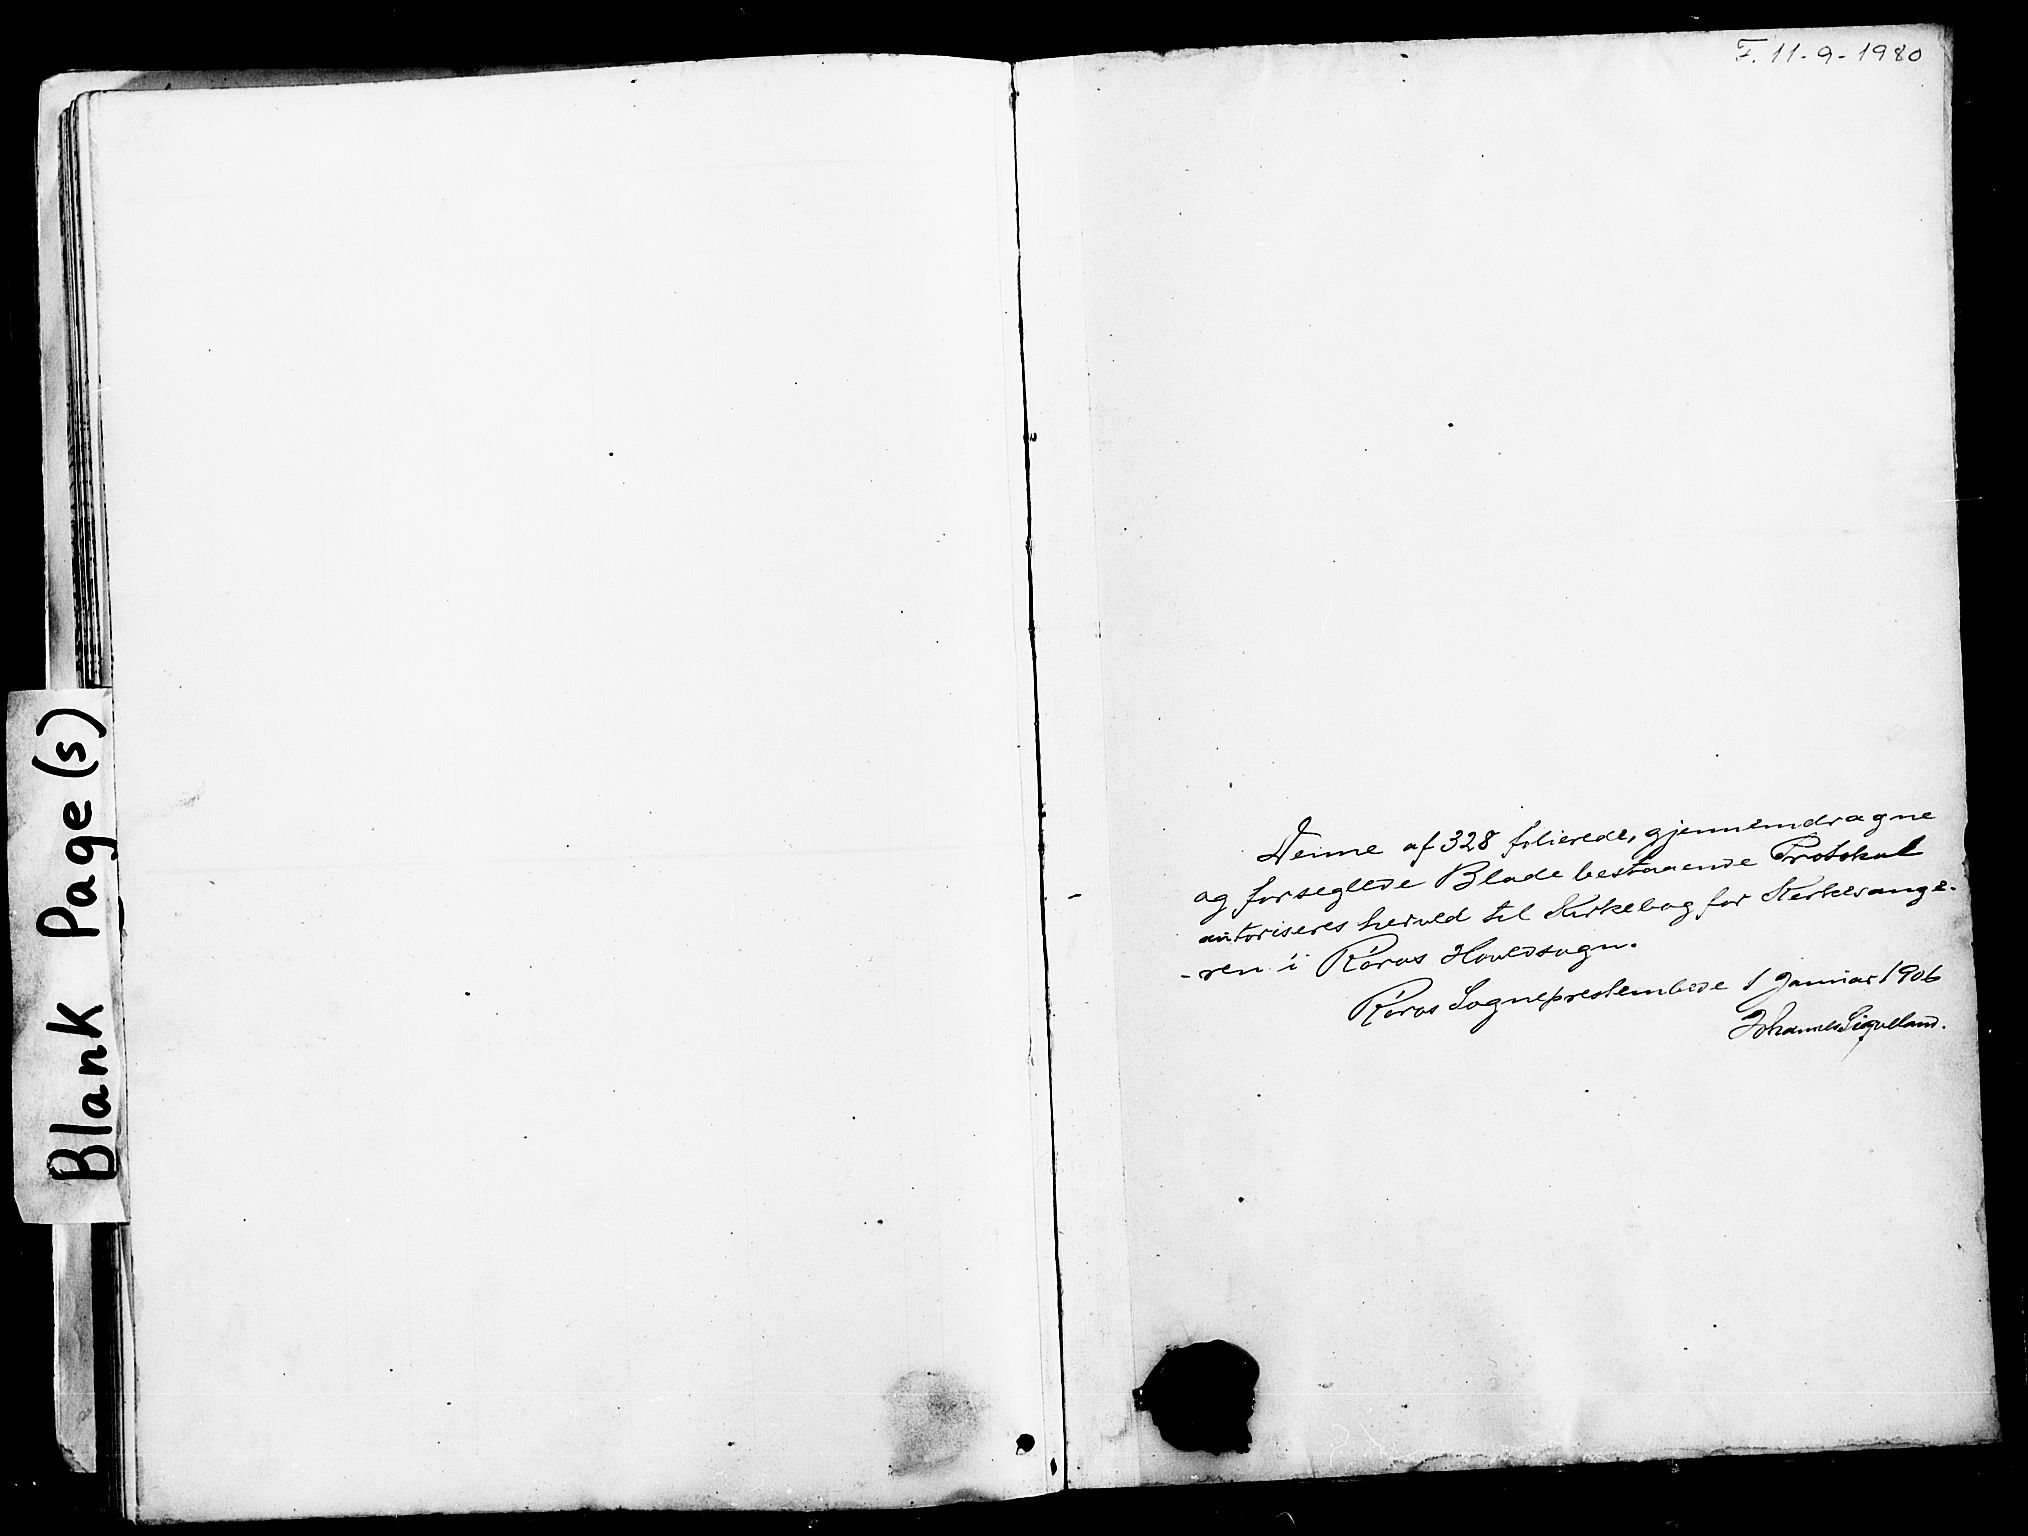 Blank Page(s)
F. 11-9-1980
Denne af 328 folierede, gjennemdragne
og forseglede Blade bestaaende Protokol
autoriseres herved til Kirkebog for Kirkesange-
-ren i Röros Hovedsogn.
Röros Sogneprestembede 1 Januar 1906
Johannes Sigveland.